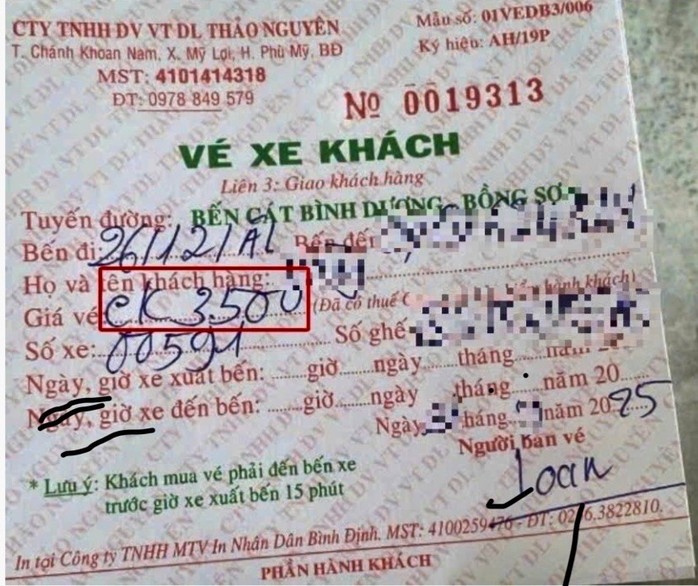 CTY TNHH DV VT DL THẢO NGUYÊN
T. Chánh Khoan Nam, X. Mỹ Lợi, H. Phù Mỹ, BĐ
MST: 4101414318
ĐT: 0978 849 579
Mẫu số: 01VEDB3/006
Ký hiệu: AH/19P
Nº 0019313
VÉ XE KHÁCH
Liên 3: Giao khách hàng
Tuyến đường: BẾN CÁT BÌNH DƯƠNG - BỒNG SƠN
Bến đi: 26/12/AL Bến đến
Họ và tên khách hàng:
Giá vé CK 3.500 (Đã có thuế hành khách)
Số xe: 00591 Số ghế
Ngày, giờ xe xuất bến: giờ ngày tháng năm 20
Ngày, giờ xe đến bến: giờ ngày tháng năm 20
Ngày tháng năm 2025
Người bán vé
Loan
* Lưu ý: Khách mua vé phải đến bến xe
trước giờ xe xuất bến 15 phút
In tại Công ty TNHH MTV In Nhân Dân Bình Định. MST: 4100259476 - ĐT: 0256.3822810.
PHẦN HÀNH KHÁCH